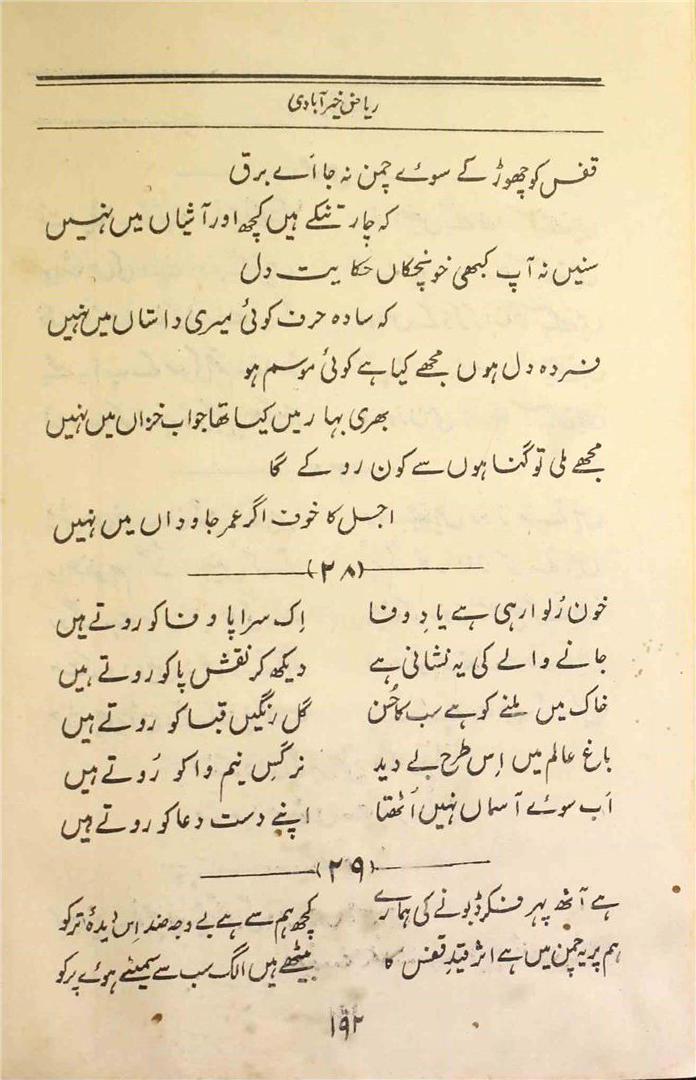 ریاض خیرآبادی
قفس کو چھوڑ کے سوئے چمن نہ جا اَے برق
کہ چار تنکے ہیں کچھ اور آشیاں میں نہیں
سنیں نہ آپ کبھی خونچکاں حکایت دل
کہ سادہ حرف کوئی میری داستاں میں نہیں
فسردہ دل ہوں مجھے کیا ہے کوئی موسم ہو
بھری بہار میں کیا تھا جواب خزاں میں نہیں
مجھے ملی تو گناہوں سے کون روکے گا
اجل کا خوف اگر عمر جاوداں میں نہیں
(۲۸)
خون رُلوا رہی ہے یادِ وفا اِک سراپا وفا کو روتے ہیں
جانے والے کی یہ نشانی ہے دیکھ کر نقش پا کو روتے ہیں
خاک میں ملنے کو ہے سب کا حُسن گل رنگیں قبا کو روتے ہیں
باغ عالم میں اِس طرح بے دید نرگسِ نیم وا کو رُوتے ہیں
اَب سوئے آسماں نہیں اُٹھتا اپنے دست دعا کو روتے ہیں
(۲۹)
ہے آٹھ پہر فکر ڈبونے کی ہمارے کچھ ہم سے ہے بے وجہ ضد اِس دیدۂ تر کو
ہم پر یہ چمن میں ہے اثر قیدِ قفس کا بیٹھے ہیں الگ سب سے سمیٹے ہوئے پر کو
۱۹۲